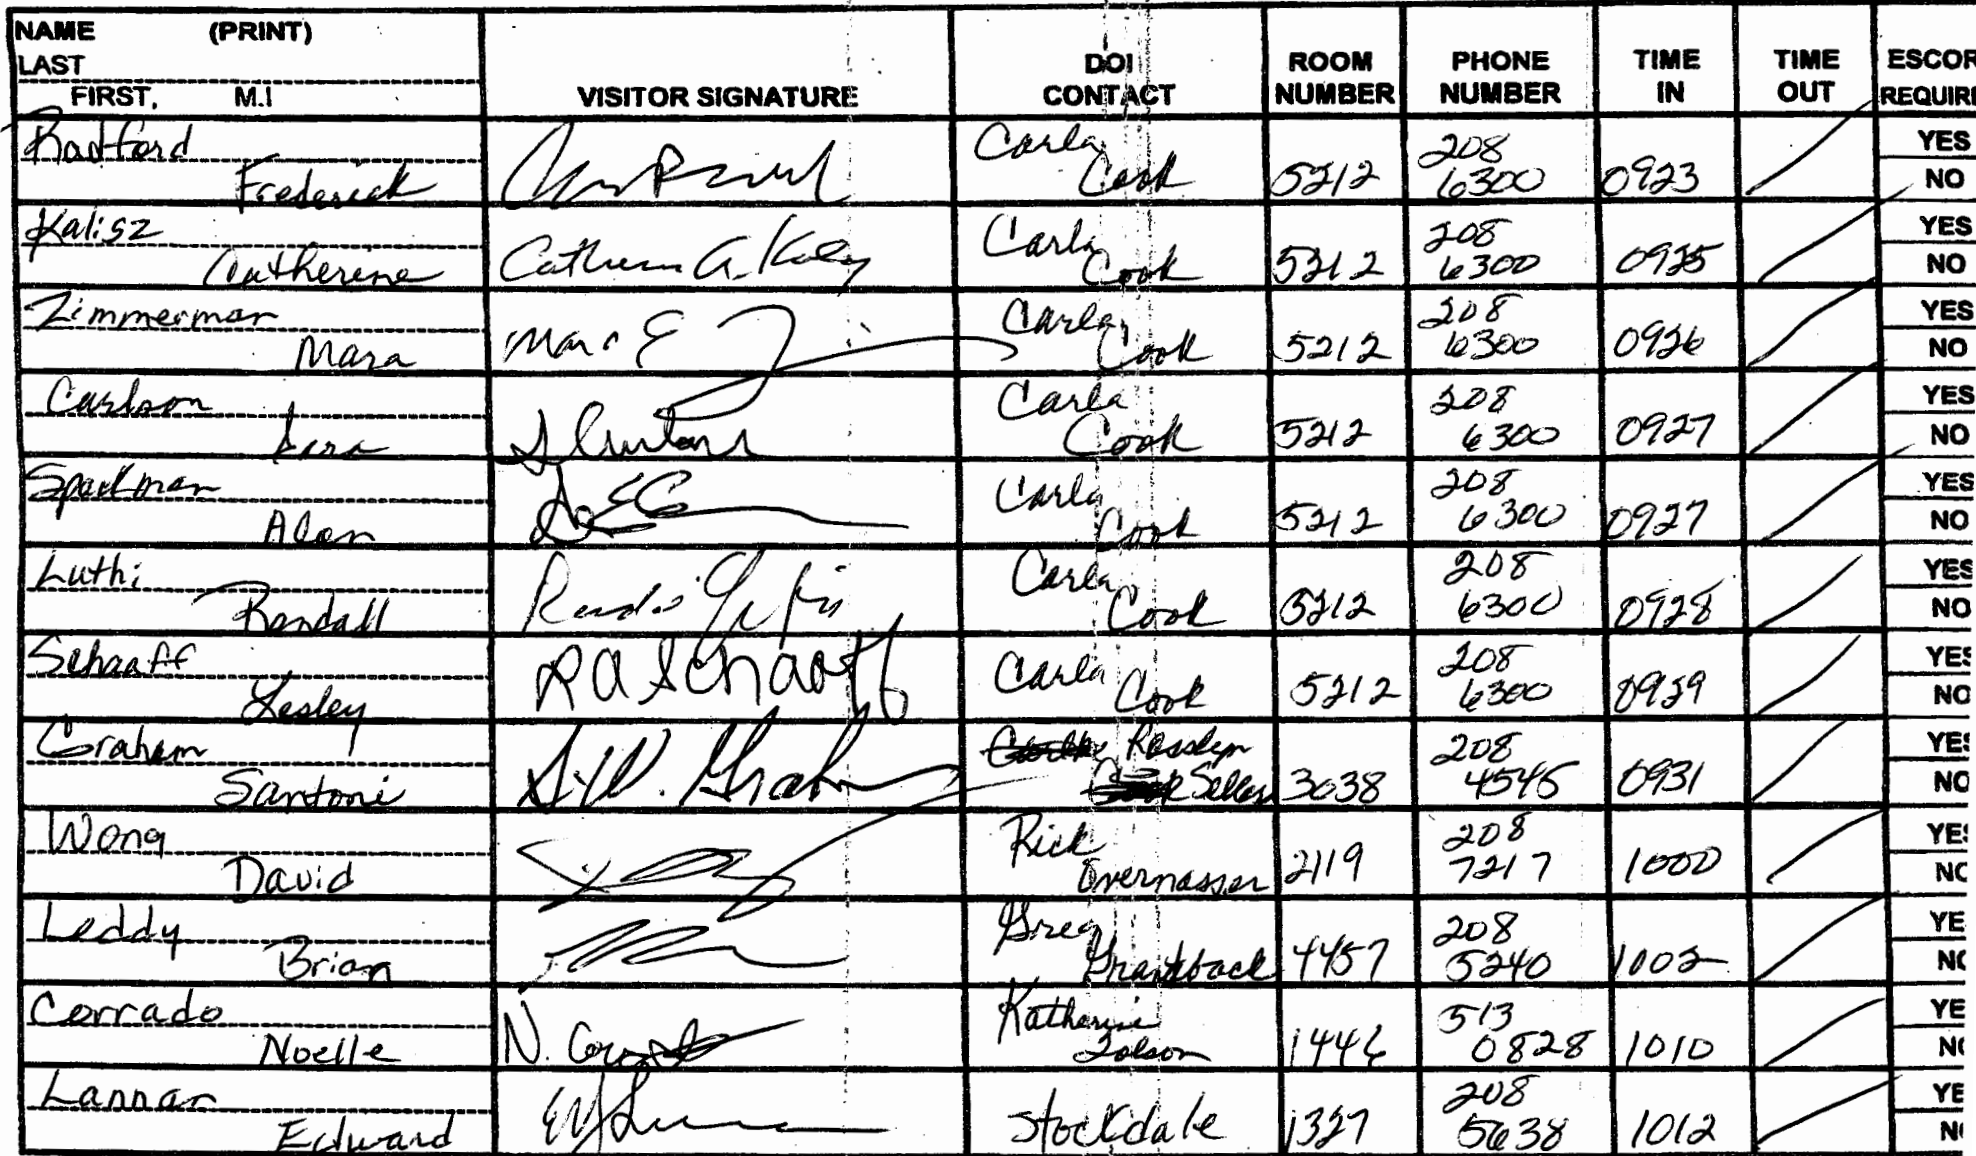 NAME (PRINT)
LAST
FIRST, M.I
VISITOR SIGNATURE
DOI
CONTACT
ROOM
NUMBER
PHONE
NUMBER
TIME
IN
TIME
OUT
ESCOR
REQUIRE
Radford
Frederick
Carla
Cook
5212
208
6300
0923
YES
NO
Kalisz
Catherine
Catherine A. Kalisz
Carla
Cook
5212
208
6300
0925
YES
NO
Zimmerman
Mara
Mara E
Carla
Cook
5212
208
6300
0926
YES
NO
Carlson
Carla
Cook
5212
208
6300
0927
YES
NO
Sparkman
Alan
Carla
Cook
5212
208
6300
0927
YES
NO
Luthi
Randall
Carla
Cook
5212
208
6300
0928
YES
NO
Schaaff
Lesley
Schaaff
Carla
Cook
5212
208
6300
0929
YES
NO
Graham
Santoni
Graham
Rosslyn
Sellars
3038
208
4545
0931
YES
NO
Wong
David
Rick
2119
208
7217
1000
YES
NC
Leddy
Brian
Greg
4457
208
5240
1002
YE
NC
Corrado
Noelle
N. Corrado
Katherine
Tolson
1446
513
0828
1010
YE
N
Lannan
Edward
Stockdale
1327
208
5638
1012
YE
N